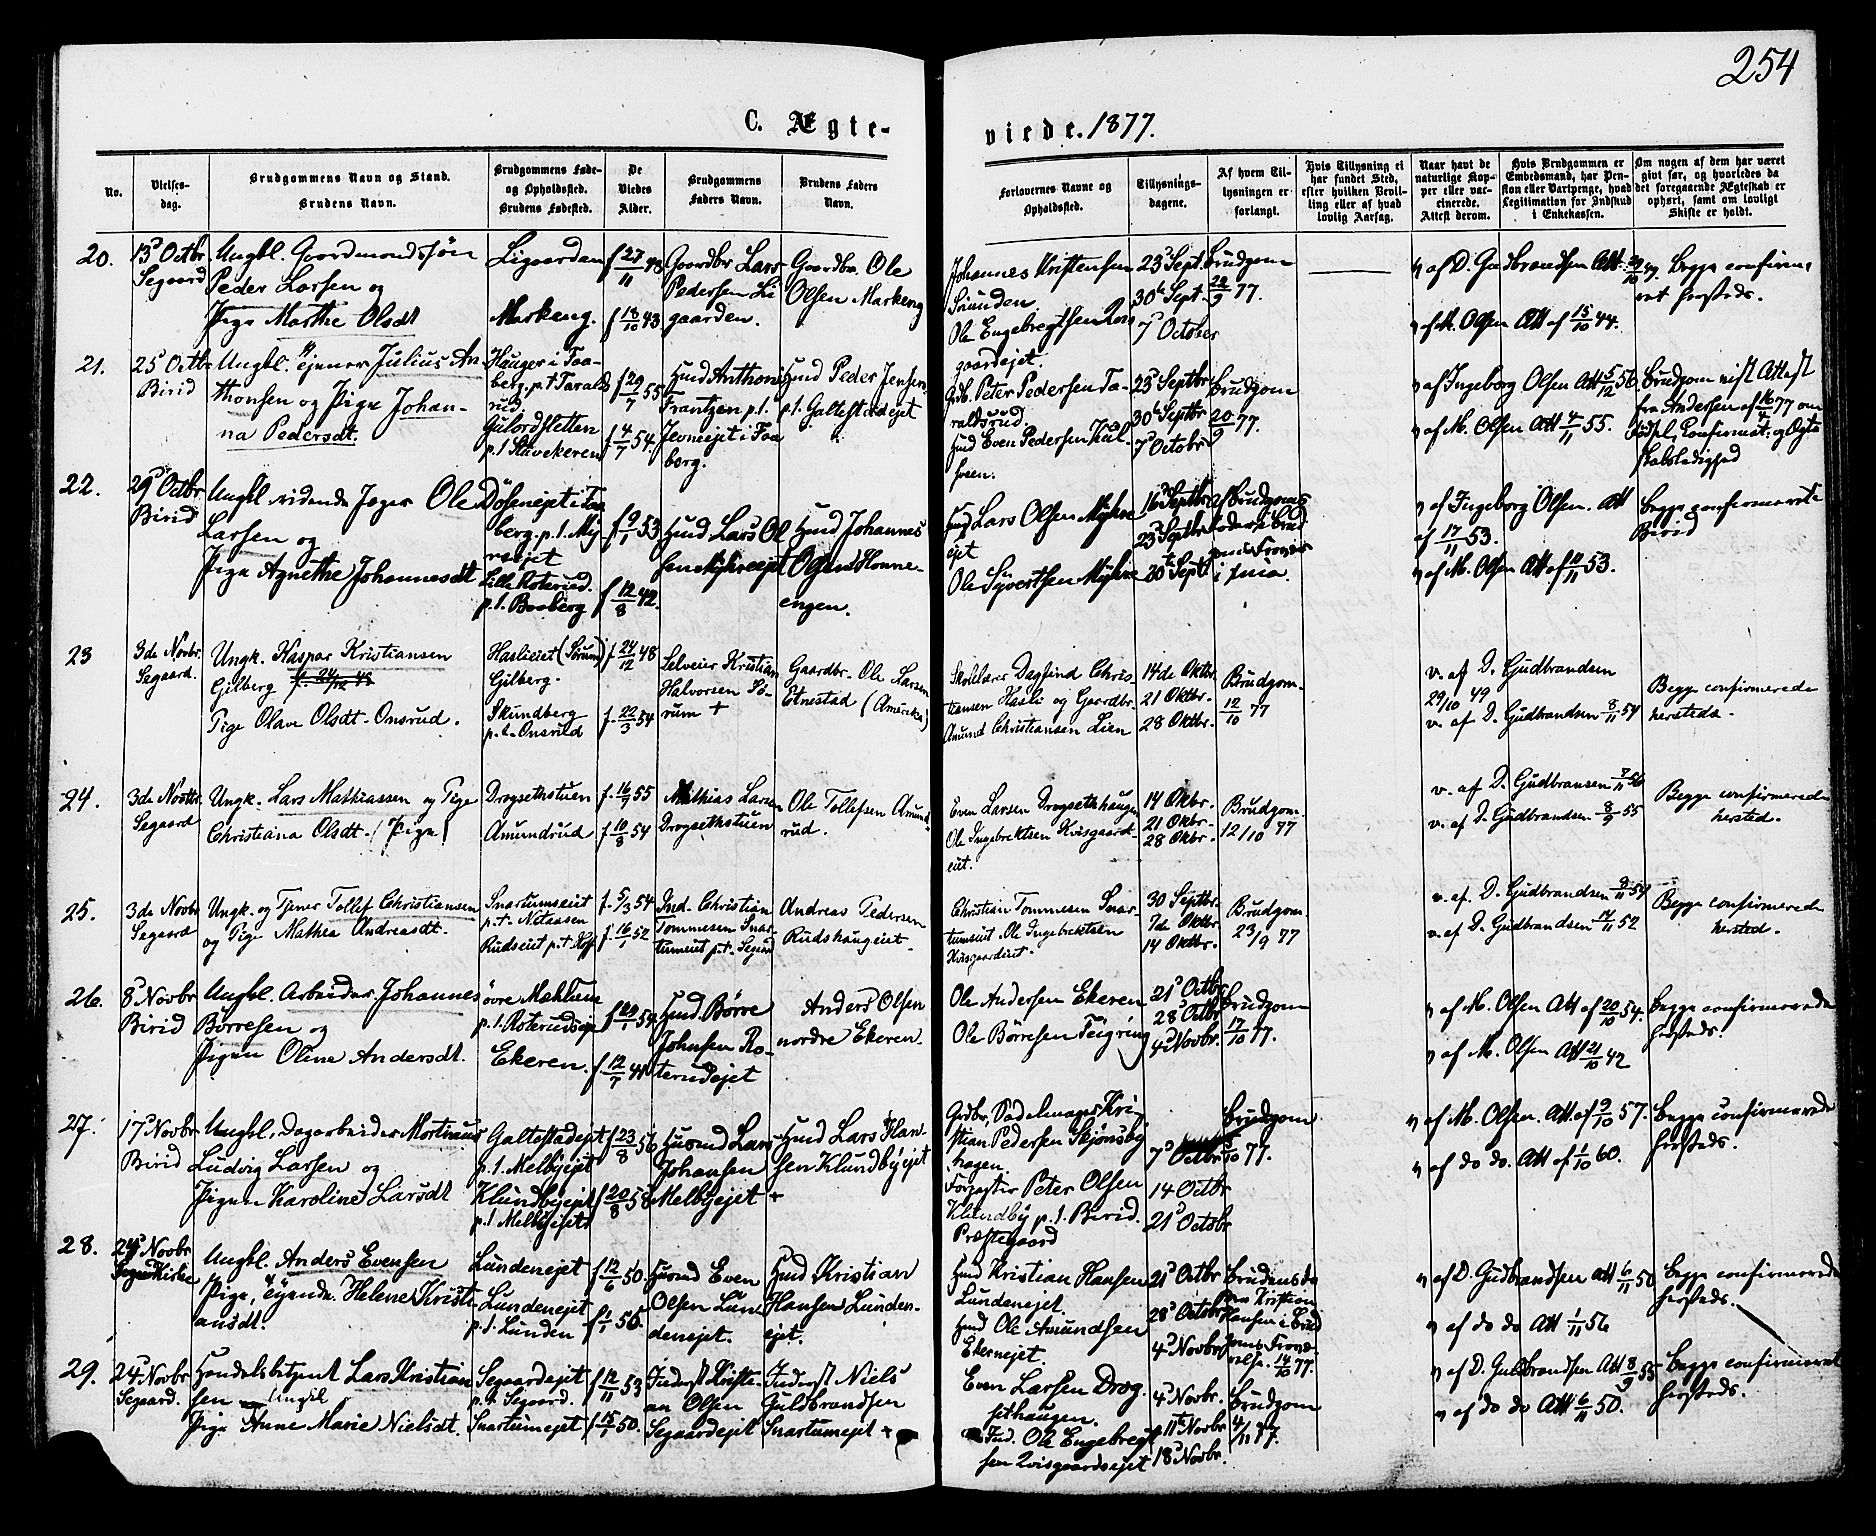 254
C. Ægte-
viede. 1877.
No.
Vielses-
dag.
Brudgommens Navn og Stand.
Brudens Navn.
Brudgommens Føde-
og Opholdssted.
Brudens Fødested.
De
Viedes
Alder.
Brudgommens
Faders Navn.
Brudens Faders
Navn.
Forlovernes Navne og
Opholdssted.
Tillysnings-
dagene.
Af hvem Til-
lysningen er
forlangt.
Hvis Tillysning ei
har fundet Sted,
efter hvilken Bevil-
ling eller af hvad
lovlig Aarsag.
Naar havt de
naturlige Kop-
per eller vac-
cinerede.
Attest derom.
Hvis Brudgommen er
Embedsmand, har Pen-
sion eller Vartpenge, hvad
Legitimation for Indskud
i Enkekassen.
Om nogen af dem har været
gift før, og hvorledes da
det foregaaende Ægteskab er
ophørt, samt om lovligt
Skifte er holdt.
20.
13d Octbr
Segaard
Ungkl. Gaardmandssøn
Peder Larsen og
Pige Marthe Olsdt
Ligaarden
Markeng.
f 27/11 43
f 18/10 43
Gaardbr Lars
Pedersen Li-
gaarden.
Gaardbr. Ole
Olsen Markeng
Johannes Kristensen
Ole Engebregtsen
gaardejet.
23d Sept.
30te Sept.
7d October
Brudgom
22/9 77.
v af D. Gudbrandsen Att.
v af M. Olsen Att af 15/10 44.
Begge confirme-
ret hersteds.
21.
25d Octbr
Birid
Ungkl. Tjener Julius An-
thonsen og Pige Johan-
na Pedersdt.
Hauger i Faa-
berg. p.t Tarald-
rud
p.t Stavekeren
f 29/7 55
f 4/7 54.
Husd Anthoni
Frantzen p.t.
Jevneejet i Faa-
berg.
Husd Peder Jensen
p.t. Galtestadejet
Gdb. Peter Pedersen Ta-
raldsrud
Husd Even Pedersen Kul-
sveen.
23d Septbr
30te Septbr
7d Octobr
Brudgom
20/9 77.
v af Ingeborg Olsen Att 5/12 56
v af M. Olsen Att 4/11 55.
Brudgom vist Attest
fra Andersen af 16/4 77 om
Fødsel, Confirmat: og Ægte-
skabsledighed
22.
29d Octbr
Birid
Ungkl ridende Jæger Ole
Larsen og
Pige Agnethe Johannesdt
Døsenejet i Faa-
berg. p.t. My-
reejet
Lille Roterud.
p.t. Braaberg
f 9/1 53
f 12/8 42.
Husd Lars Ol-
sen Myhreejet
Husd Johannes
Olsen Honne-
engen.
Husd Lars Olsen Myhre-
ejet
Ole Syvertsen Myhre
16d Septbr
23d Septbr
30te Sept.
af Brudgoms
Fader i Brud-
goms Fravær
v af Ingeborg Olsen. Att
af 17/11 53.
v af M. Olsen Att af 10/11 53.
Begge confirmerede
Birid
23
3de Novbr.
Segaard.
Ungk. Kaspar Kristiansen
Gilberg f. 24/12 48
Pige Olava Olsdt. Onsrud.
Haslieiet (Sørum)
Gilberg.
Skundberg
p.t. Onsrud
f. 24/12 48
f. 22/3 54
Selveier Kristian
Halvorsen Sø-
rum +
Gaardbr. Ole Larsen
Etnestad (Amerika)
Skolelærer Dagfind Chris-
tiansen Hasli og Gaardbr.
Amund Christiansen Lien
14de Oktbr.
21 Oktbr.
28 Oktbr.
Brudgom.
12/10 77
v. af D. Gudbrandsen
29/10 49
v. af D. Gudbrandsen 8/11 54
Begge confirmerede
hersteds.
24.
3de Novbr.
Segaard
Ungk. Lars Mathiassen og Pige
Christiana Olsdt. (Pige)
Drogsethstuen
Amundrud
f. 16/9 55
f. 10/8 54
Mathias Larsen
Drogsethstuen
Ole Tollefsen Amund-
rud.
Even Larsen Drogsethhaugen
Ole Ingebrektsen Kvisgaards-
eiet.
14 Okbr.
21 Okbr.
28 Okbr.
Brudgom.
12/10 77
v. af D. Gudbransen 7/11 56
v. af D. Gudbrandsen 8/9 55
Begge confirmerede
hersted.
25.
3de Novbr
Segaard
Ungk. og Tjener Tollef Christiansen
og Pige Mathea Andreasdt.
Snartumseiet
p.t. Netaasen
Rudseiet p.t. Hoff
f. 5/3 54
f. 16/1 52
Ind. Christian
Tommesen Snar-
tumseiet p.t. Segaard
Andreas Pedersen
Rudshaugeiet.
Christian Tommesen Snar-
tumseiet. Ole Ingebrektsen
Kvisgaardeiet.
30 Septbr.
7de Oktbr.
14 Oktbr.
Brudgom.
23/9 77
v. af D. Gudbrandsen 9/11 54
v. af D. Gudbrandsen 14/11 52
Begge confirmerede
hersted.
26.
8d Novbr
Birid
Ungkl. Arbeider Johannes
Børresen og
Pigen Oline Andersdt.
øvre Mæhlum
p.t. Roterudseje
Ekeren.
f 20/1 54
f 12/7 41
Husd. Børre
Johnsen Ro-
terudejet
Anders Olsen
nordre Ekeren.
Ole Andersen Ekeren
Ole Børresen Teigring
21d Octbr
28d Octbr
4d Novbr.
Brudgom
17/10 77.
v af M. Olsen Att af 20/10 54.
v af M. Olsen Att 21/10 42
Begge confirmerede
hersteds.
27.
17d Novbr
Birid
Ungkl. Dagarbeider Martinius
Ludvig Larsen og
Pigen Karoline Larsdt
Galtestadejet
p.t. Melbyejet
Klundbyejet
p.t Melbyejet
f 23/8 56
f 20/8 58
Husmd Lars
Johansen
Melbyejet
Husd Lars Han-
sen Klundbyejet
+
Grdbr, Sadelmager Kri-
stian Pedersen Skjønsby-
hagen.
Forpagter Peter Olsen
Klundby p.t. Birid
Præstegaard
7d Octbr
14 Octbr
21d Octobr
Brudgom
5/10 77.
v af M. Olsen. Att. af 9/10 57.
v af do do. Att af 1/10 60.
Begge confirmerede
hersteds.
28.
24d Novbr
Segaard Kirke
Ungkl. Anders Evensen
Pige, Tjende. Helene Kristi-
ansdt.
Lundenejet
Lundenejet
p.t. Lunden
f 12/6 50.
f 5/1 56.
Husmd Even
Olsen Lun-
denejet.
Husd Kristian
Hansen Lunden-
ejet.
Husd Kristian Hansen
Lundenejet.
Husd Ole Amundsen
Ekernejet.
21d Octbr
28d Octobr
4d Novbr
Brudens Fa-
der Kristian
Hansen i Brud-
goms Fravæ-
relse. 14/10 77.
v af D. Gudbrandsen Att 6/11 50
v af do do Att 1/11 56
Begge confirmerede
hersteds.
29.
24d Novbr
Segaard.
Handelsbetjent Lars Kristian-
sen Ungkl
Pige Anne Marie Nielsdt.
Segaardejet
p.t. Segaard.
Snartumejet
f 12/11 53
f 15/1 50.
Inderst Kristi-
an Olsen
Segaardejet
Inderst Niels
Guldbrandsen
Snartumejet +
Even Larsen Drog-
sethaugen.
Ind. Ole Engebregt-
sen Qvisgaardsejet
4d Novbr.
11te Novbr
18d Novbr.
Brudgom
4/11 77.
v af D. Guldbrandsen Att 8/9 55
v af do do Att 6/11 50.
Begge confirmeret
hersteds.